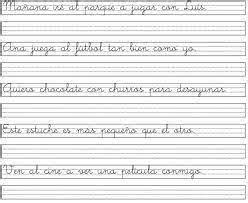 Mañana iré al parque a jugar con Luis.
Ana juega al fútbol tan bien como yo.
Quiero chocolate con churros para desayunar.
Este estuche es más pequeño que el otro.
Ven al cine a ver una película conmigo.